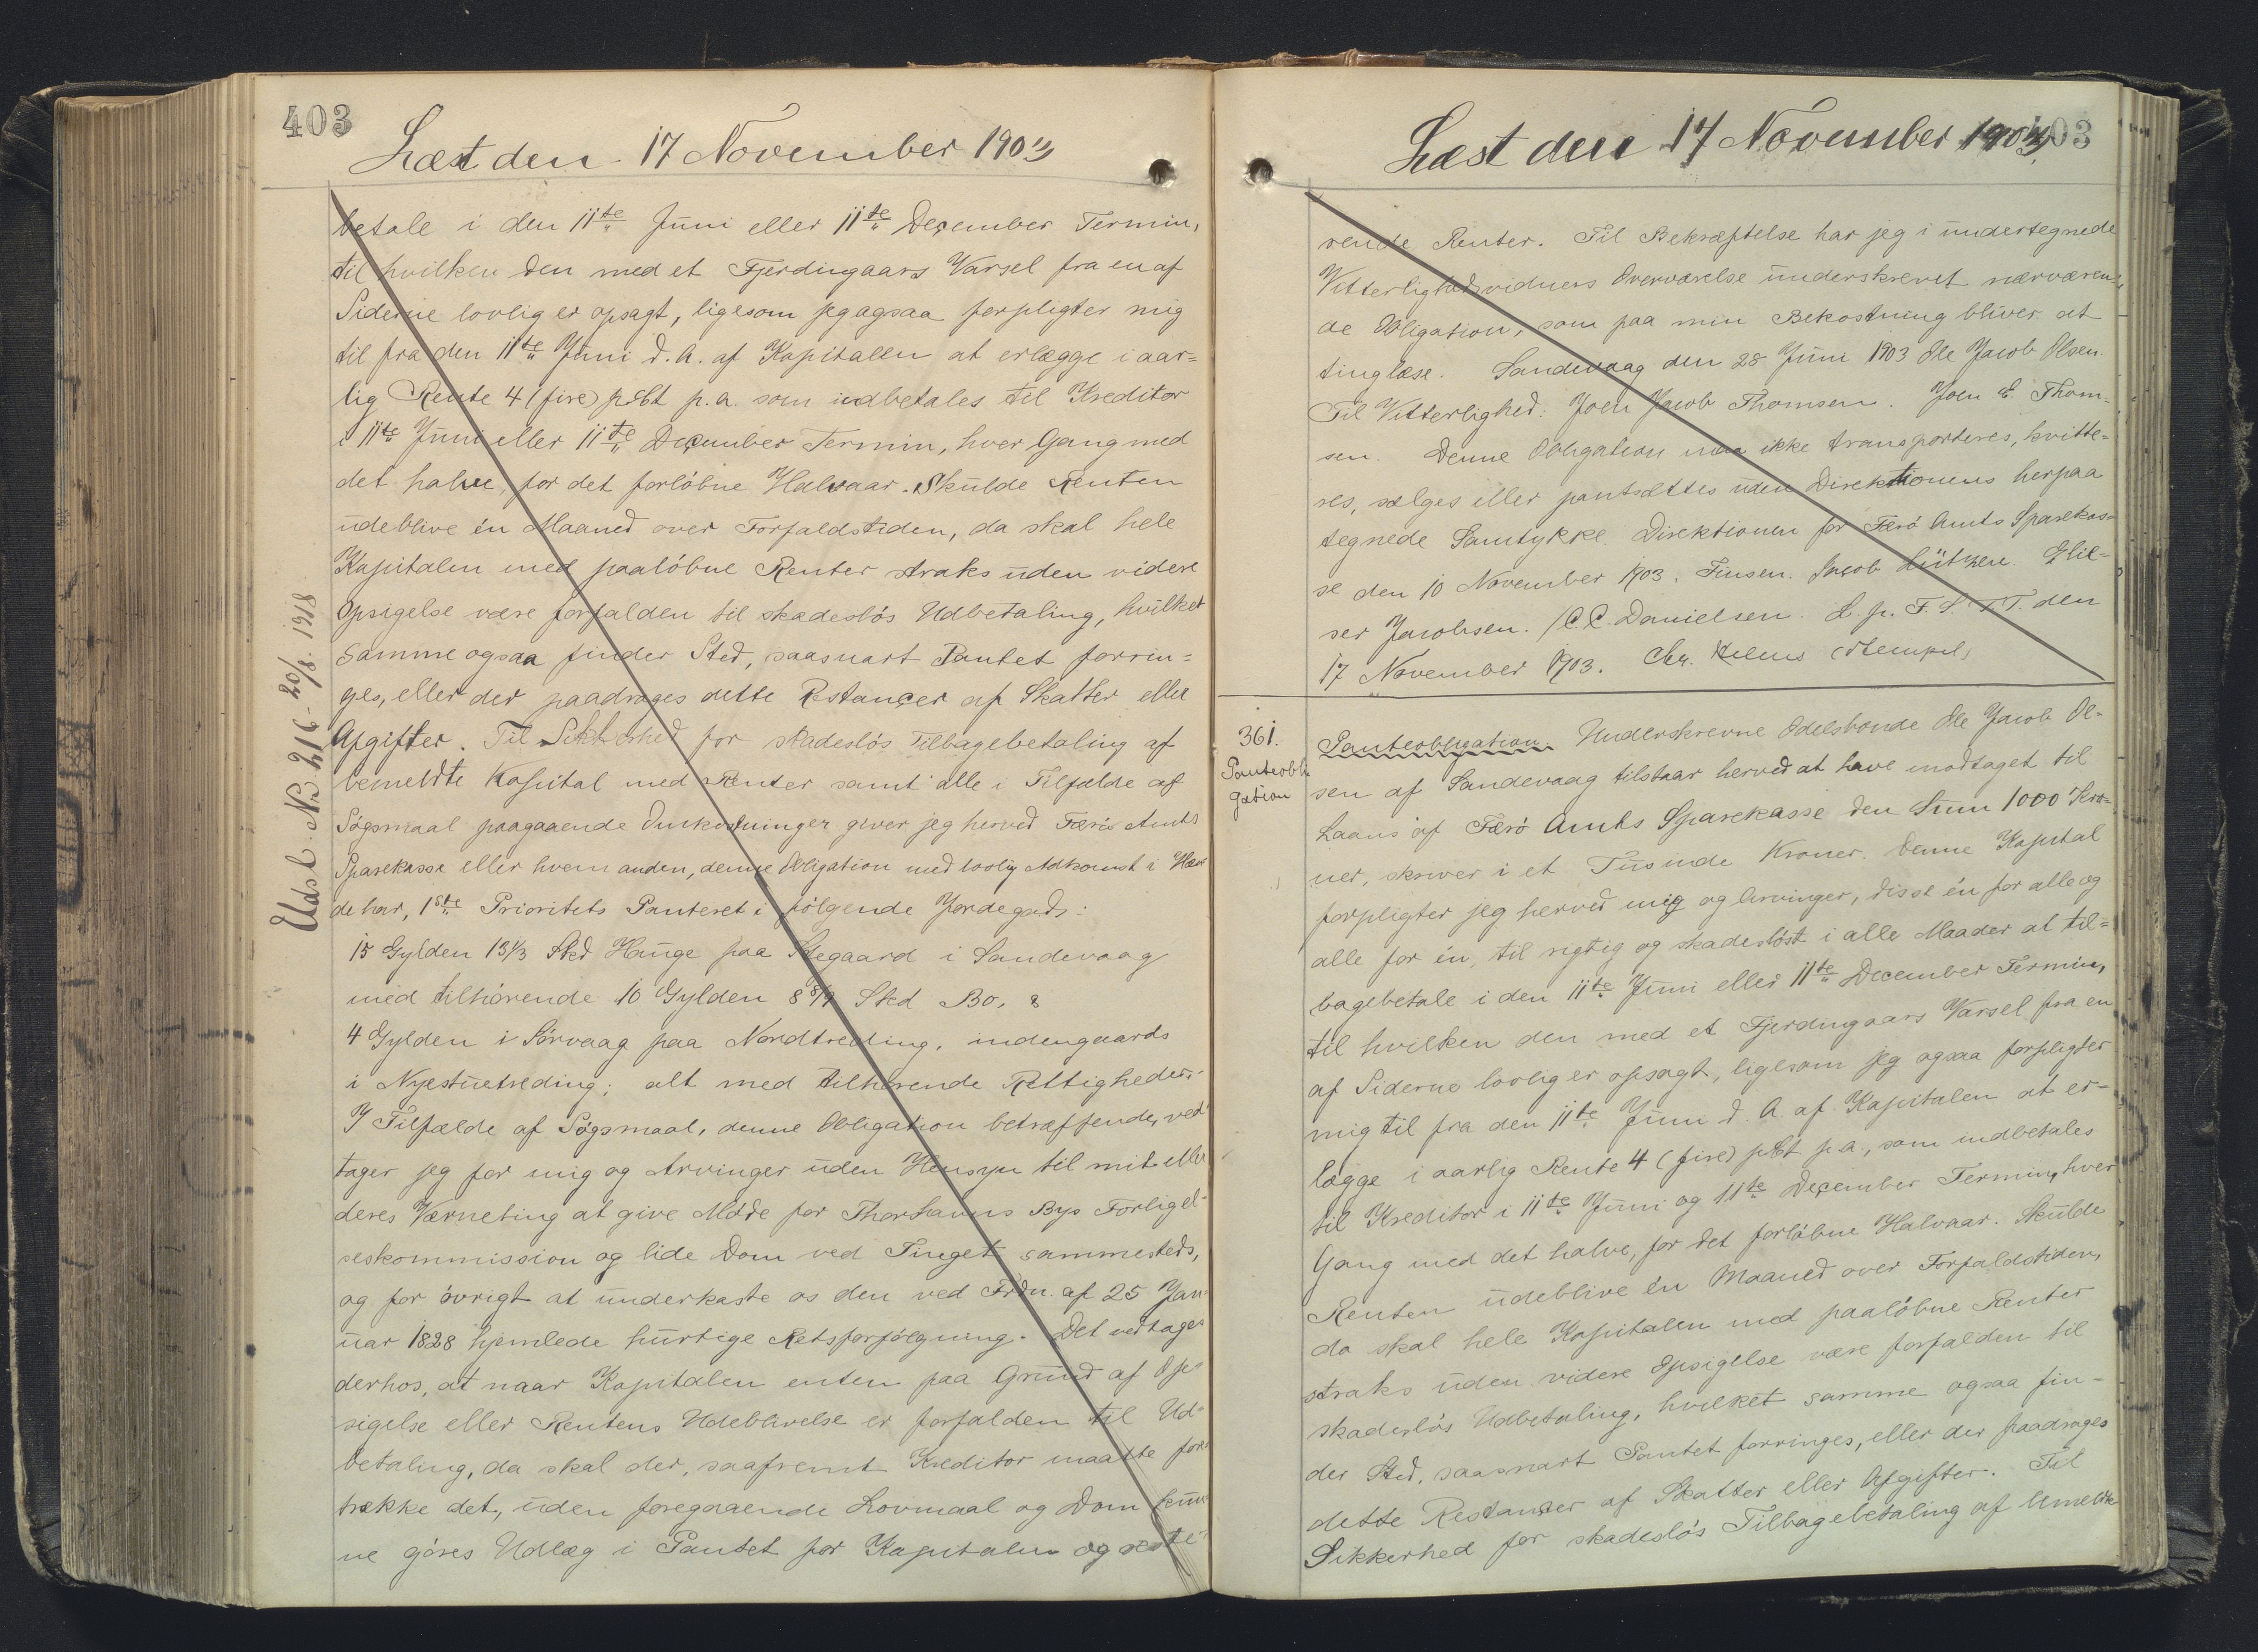 403
Læst den 17 November 1903
betale i den 11te Juni eller 11te December Termin,
til hvilken den med et Fjerdingaars Varsel fra en af
Siderne lovlig er opsagt, ligesom jeg ogsaa forpligter mig
til fra den 11te Juni d. A. af Kapitalen at erlægge i aar=
lig Rente 4 (fire) pCt p.a. som indbetales til Kreditor
i 11te Juni eller 11te December Termin, hver Gang med
det halve, for det forløbne Halvaar. Skulde Renten
udeblive én Maaned over Forfaldstiden, da skal hele
Kapitalen med paaløbne Renter straks uden videre
Opsigelse være forfalden til skadesløs Udbetaling, hvilket
samme ogsaa finder Sted, saasnart Pantet forrin=
ges, eller der paadrages dette Restancer af Skatter eller
Afgifter. Til Sikkerhed for skadesløs Tilbagebetaling af
bemeldte Kapital med Renter samt alle i Tilfælde af
Søgsmaal paagaaende Omkostninger giver jeg herved Færø Amts
Sparekasse eller hvem anden, denne Obligation med lovlig Adkomst i Hæn
de har, 1ste Prioritets Panteret i følgende Jordegods:
15 Gylden 13 1/3 Skd Hauge paa Stegaard i Sandevaag
med tilhørende 10 Gylden 8 8/9 Skd Bo. &
4 Gylden i Sørvaag paa Nordtreding, indengaards
i Nyestuetreding; alt med tilhørende Rettigheder.
I Tilfælde af Søgsmaal, denne Obligation betræffende, ved
tager jeg for mig og Arvinger uden Hensyn til mit eller
deres Værneting at give Møde for Thorshavns Bys Forligel-
seskommission og lide Dom ved Tinget sammesteds,
og for øvrigt at underkaste os den ved Frdn. af 25 Jan
uar 1828 hjemlede hurtige Retsforfølgning. Det vedtages
derhos, at naar Kapitalen enten paa Grund af Op
sigelse eller Rentens Udeblivelse er forfalden til Ud=
betaling, da skal der, saafremt Kreditor maatte fore
trække det, uden foregaaende Lovmaal og Dom kun
ne gøres Udlæg i Pantet for Kapitalen og reste
Udsl. No 216 - 20/8. 1918
Læst den 17 November 1903
403
rende Renter. Til Bekræftelse har jeg i undertegnede
Vitterlighedsvidners Overværelse underskrevet nærværen=
de Obligation, som paa min Bekostning bliver at
tinglæse. Sandevaag den 28 Juni 1903 Ole Jacob Olsen.
Til Vitterlighed: Joen Jacob Thomsen. Joen E Thom-
sen. Denne Obligation maa ikke transporteres, kvitte=
res, sælges eller pantsættes uden Direktionens herpaa
tegnede Samtykke. Direktionen for Færø Amts Sparekas=
se den 10 November 1903. Finsen. Jacob Lützen. Elie=
ser Jacobsen. /C.C. Danielsen. L. p. F. S. T T. den
17 November 1903. Chr. (Stempel)
361.
Panteobli
gation
Panteobligation. Underskrevne Odelsbonde Ole Jacob Ol=
sen af Sandevaag tilstaar herved at have modtaget til
Laans af Færø Amts Sparekasse den Sum 1000 Kro=
ner, skriver i et Tusinde Kroner. Denne Kapital
forpligter jeg herved mig og Arvinger, disse én for alle og
alle for én, til rigtig og skadesløst i alle Maader at til=
bagebetale i den 11te Juni eller 11te December Termin,
til hvilken den med et Fjerdingaars Varsel fra en
af Siderne lovlig er opsagt, ligesom jeg ogsaa forpligter
mig til fra den 11te Juni d. A. af Kapitalen at er=
lægge i aarlig Rente 4 (fire) pCt p.a., som indbetales
til Kreditor i 11te Juni og 11te December Termin, hver
Gang med det halve, for det forløbne Halvaar. Skulde
Renten udeblive én Maaned over Forfaldstiden,
da skal hele Kapitalen med paaløbne Renter
straks uden videre Opsigelse være forfalden til
skadesløs Udbetaling, hvilket samme ogsaa fin-
der Sted, saasnart Pantet forringes, eller der paadrages
dette Restancer af Skatter eller Afgifter. Til
Sikkerhed for skadesløs Tilbagebetaling af bemeldte